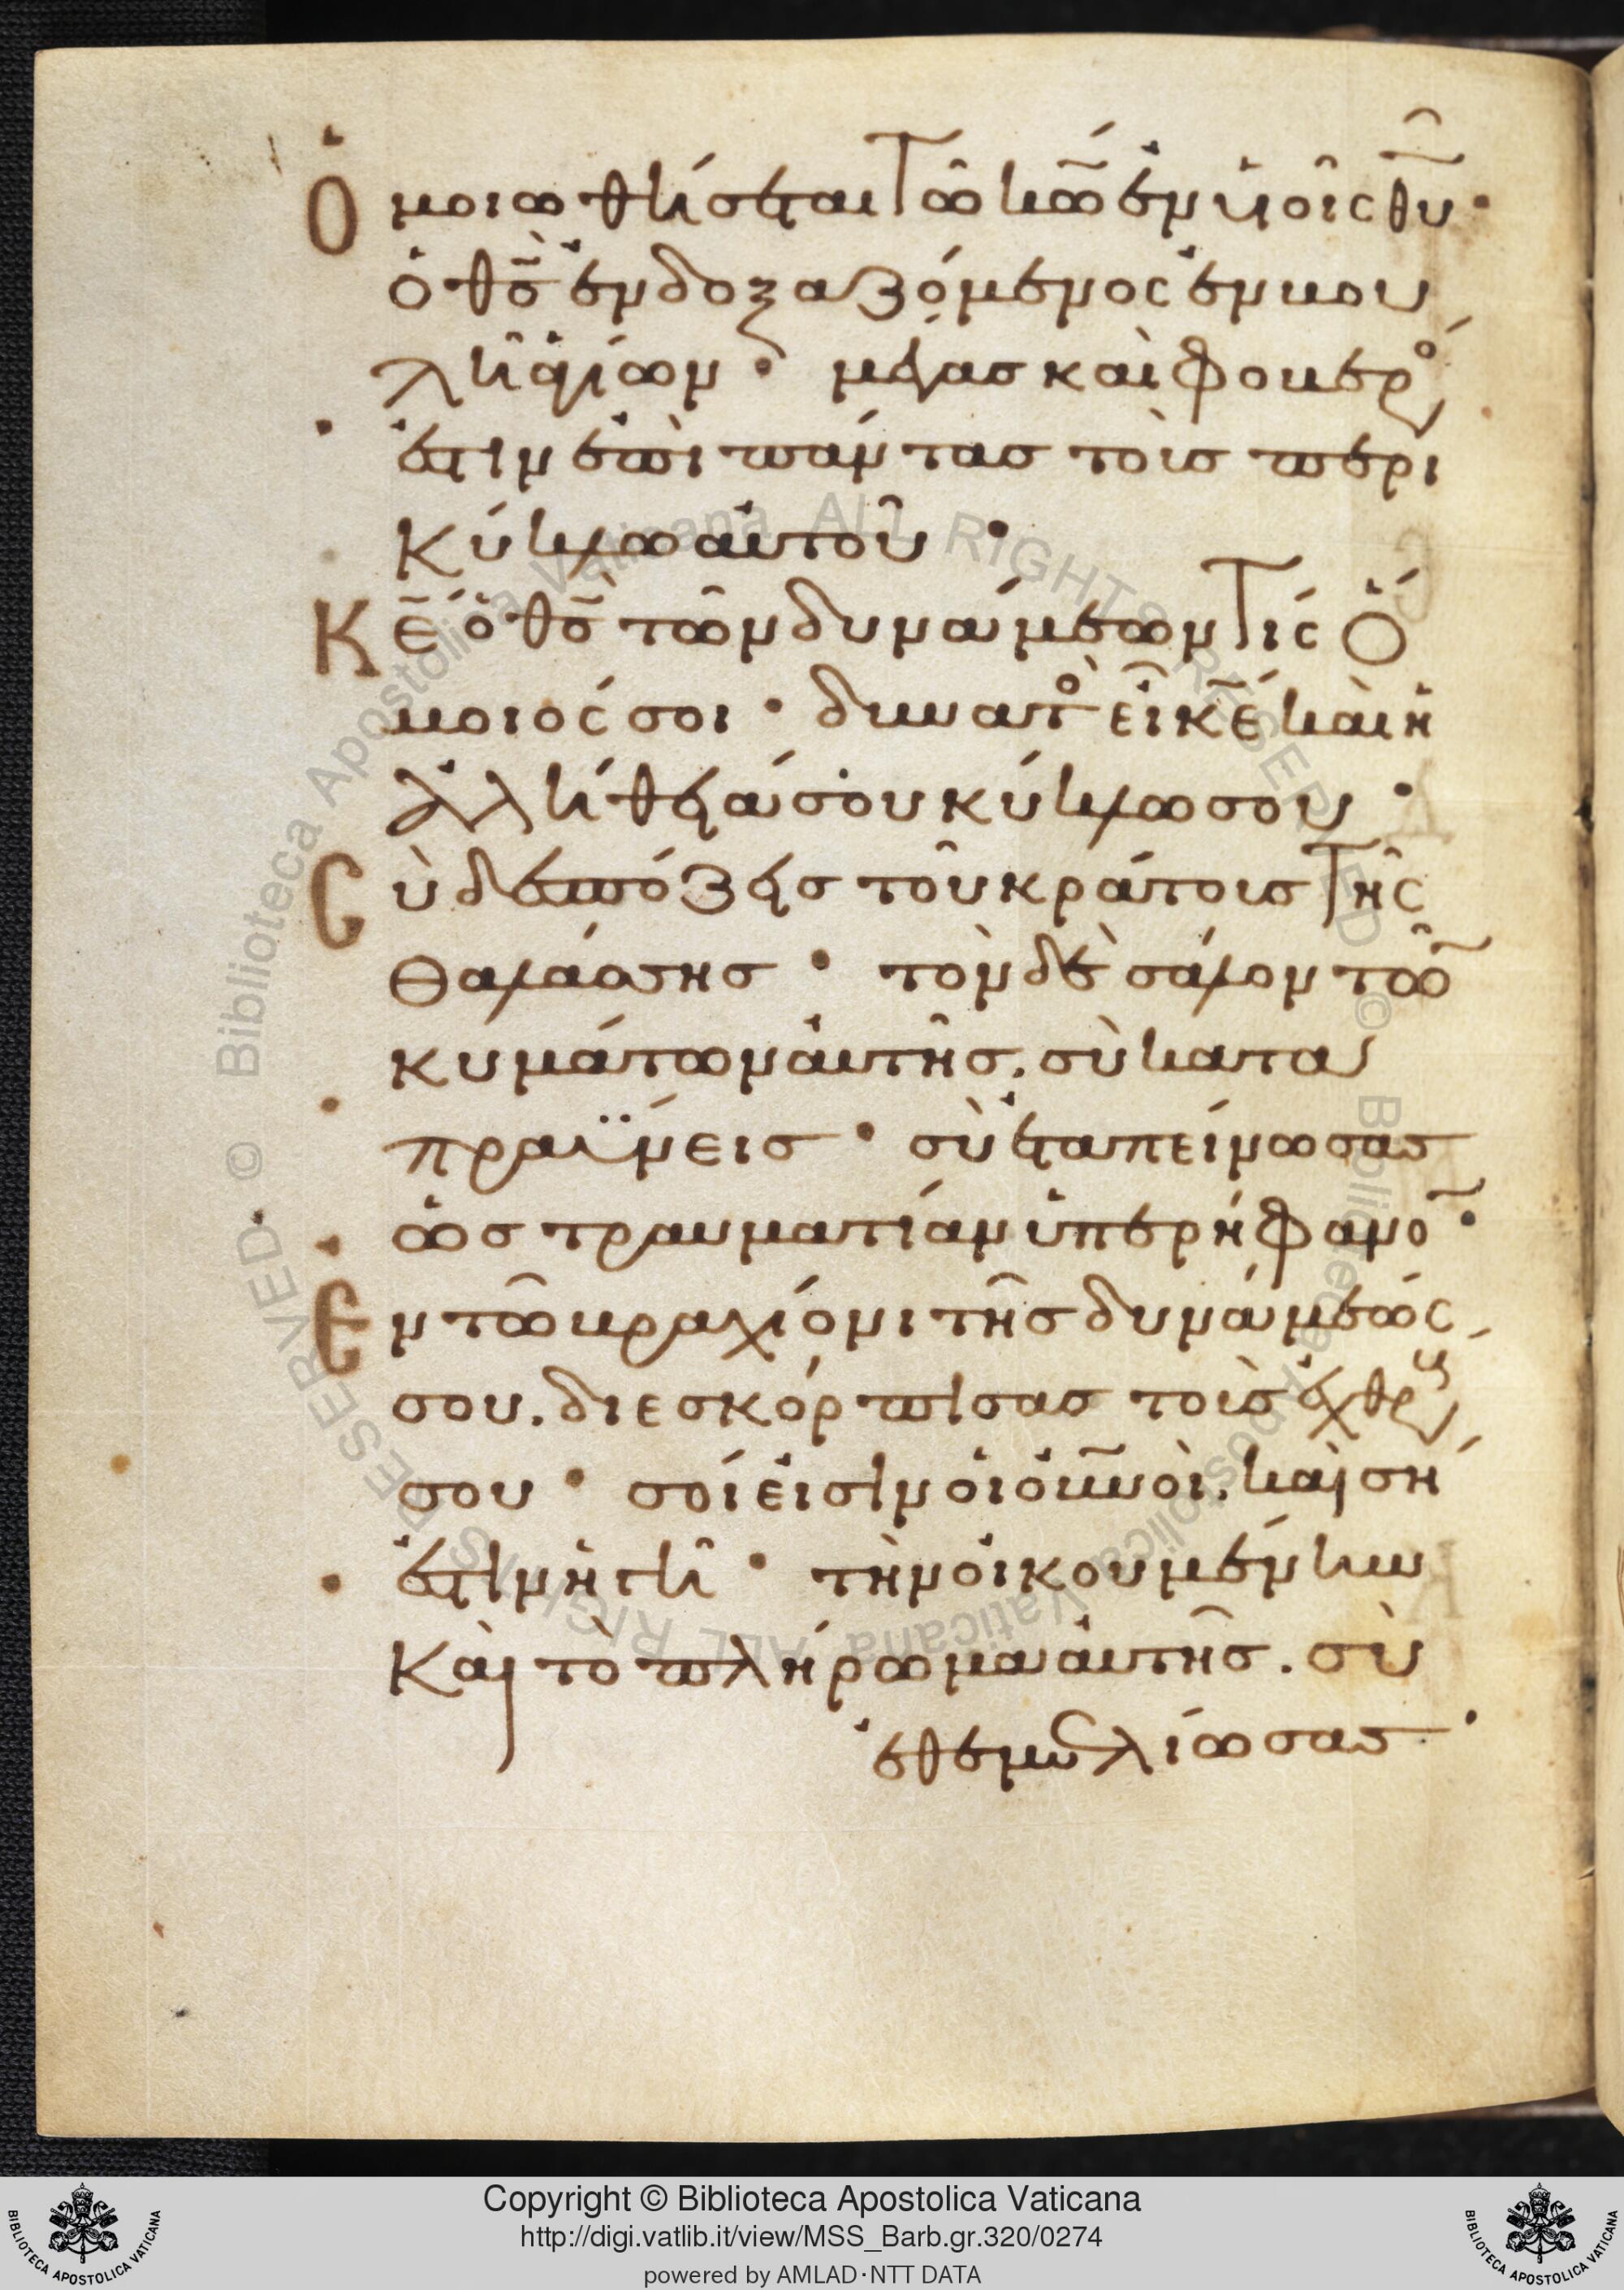 Ὁμοιωθήσεται τῶ κω̅ ἐν υἱοῖς θυ̅·
ὁ θς̅ ἐνδοξαζόμενος ἐν βου
λῆ ἁγίων· μέγας καὶ φοβερὸς
ἐστιν ἐπὶ πάντας τοὺς περι
κύκλω αὐτοῦ·
Κε̅ ὁ θς̅ τῶν δυνάμεων τίς ὅ
μοιός σοι· δυνατὸς εἶ κε̅ καὶ ἡ
ἀλήθειά σου κύκλω σου·
Σὺ δεσπόζεις τοῦ κράτους τῆς
θαλάσσης· τὸν δὲ σάλον τῶν
κυμάτων αὐτῆς. σὺ κατα
πραΰνεις· σὺ ἐταπείνωσας
ὡς τραυματίαν ὑπερήφανον·
Ἐν τῶ βραχίονι τῆς δυνάμεώς
σου. διεσκόρπισας τοὺς ἐχθρούς
σου· σοί εἰσιν οἱ οὐνοὶ. καὶ σή
ἐστιν ἡ γῆ· τὴν οἰκουμένην
καὶ τὸ πλήρωμα αὐτῆς. σὺ
ἐθεμελίωσας·
Copyright © Biblioteca Apostolica Vaticana
http://digi.vatlib.it/view/MSS_Barb.gr.320/0274
powered by AMLAD·NTT DATA
BIBLIOTECA APOSTOLICA VATICANA
BIBLIOTECA APOSTOLICA VATICANA
© Biblioteca Apostolica Vaticana ALL RIGHTS RESERVED
© Biblioteca Apostolica Vaticana ALL RIGHTS RESERVED